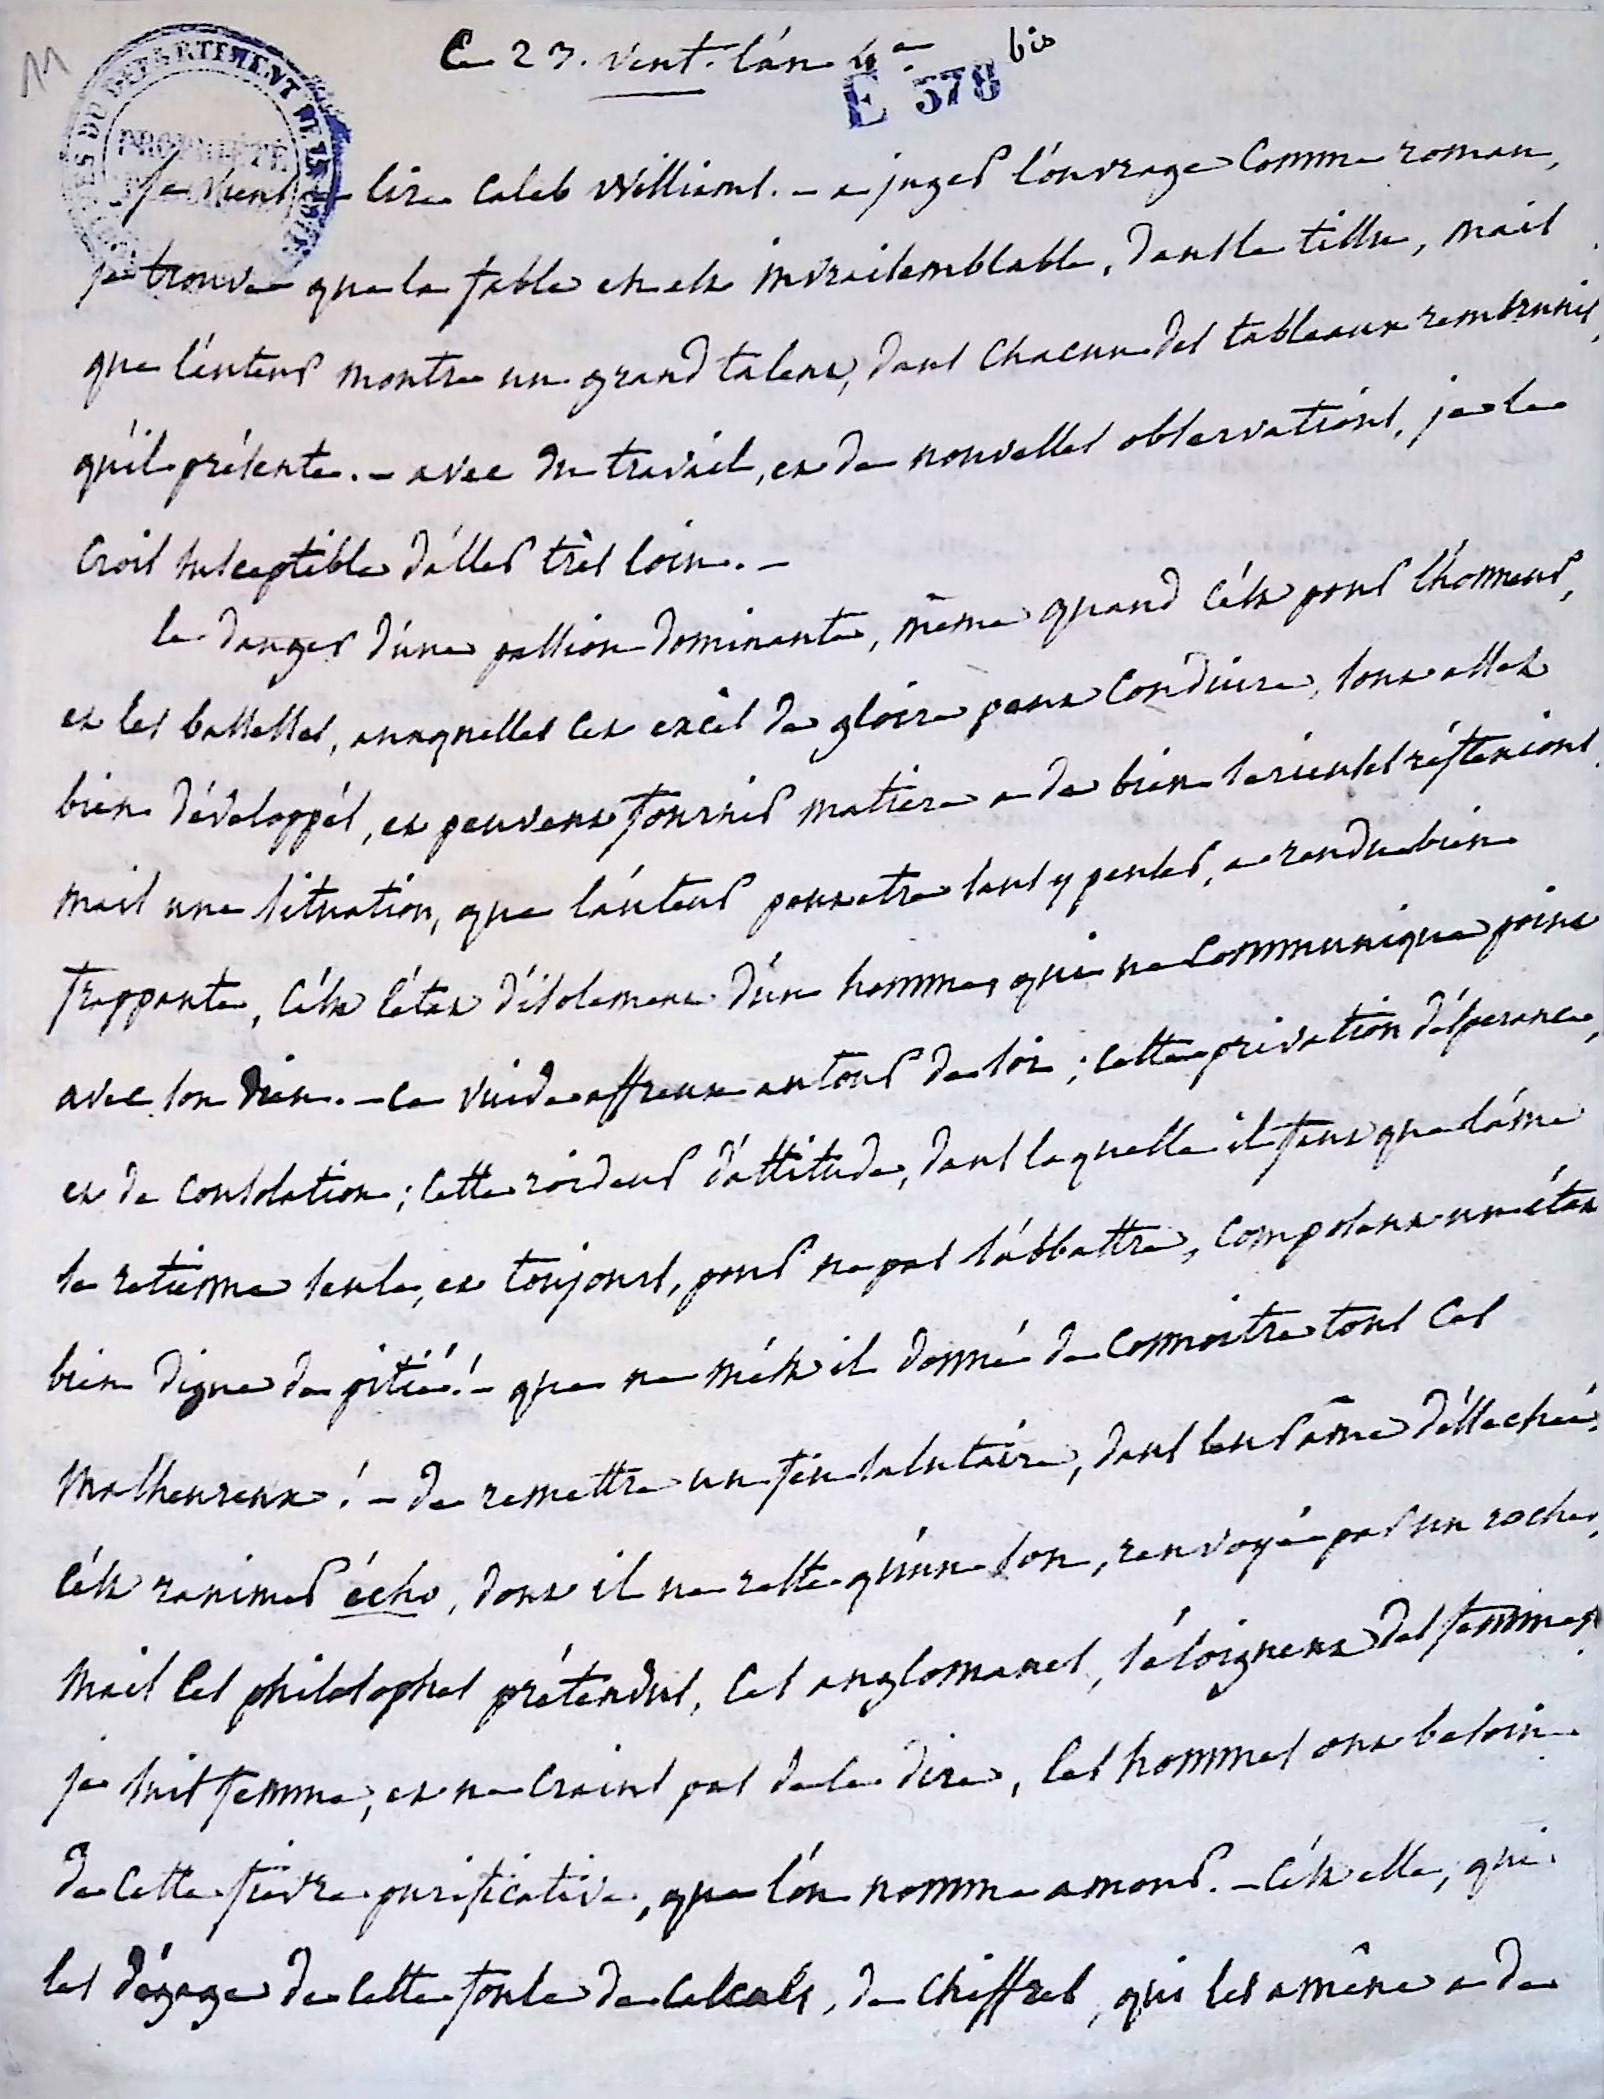 11
Ce 23. vent. l'an 4e
E 378 bis
ARCHIVES DU DÉPARTEMENT DE
PROPRIÉTÉ
Je viens de lire Caleb Williams. - a juger l'ouvrage comme roman,
je trouve que la fable en est invraisemblable, dans le tissu, mais
que l'auteur montre un grand talent, dans chacun des tableaux rembrunis,
qu'il présente. - avec du travail, et de nouvelles observations, je le
crois susceptible d'aller très loin. -
le danger d'une passion dominante, même quand c'est pour l'honneur,
et les bassesses, auxquelles cet excès de gloire peut conduire, sont assez
bien développés, et peuvent fournir matiere a de bien serieuses réflexions.
mais une situation, que l'auteur peut etre sans y penser, a rendue bien
frappante, c'est l'état d'isolement d'un homme, qui ne communique point
avec son Dieu. - ce vuide affreux autour de soi ; cette privation d'esperance,
et de consolation ; cette roideur d'attitude, dans laquelle il faut que l'áme
se retienne seule, et toujours, pour ne pas s'abbattre, composent un état
bien digne de pitié ! - que ne m'est il donné de connoitre tous ces
malheureux ! - de remettre un feu salutaire, dans leur âme desséchée.
c'est ranimer écho, dont il ne reste qu'un son, renvoyé par un rocher.
mais ces philosophes prétendus, ces anglomanes, s'éloignent des femmes.
je suis femme, et ne crains pas de le dire, les hommes ont besoin
de cette fièvre purificative, que l'on nomme amour. - c'est elle, qui
les dégage de cette foule de calculs, de chiffres, qui les amène a de